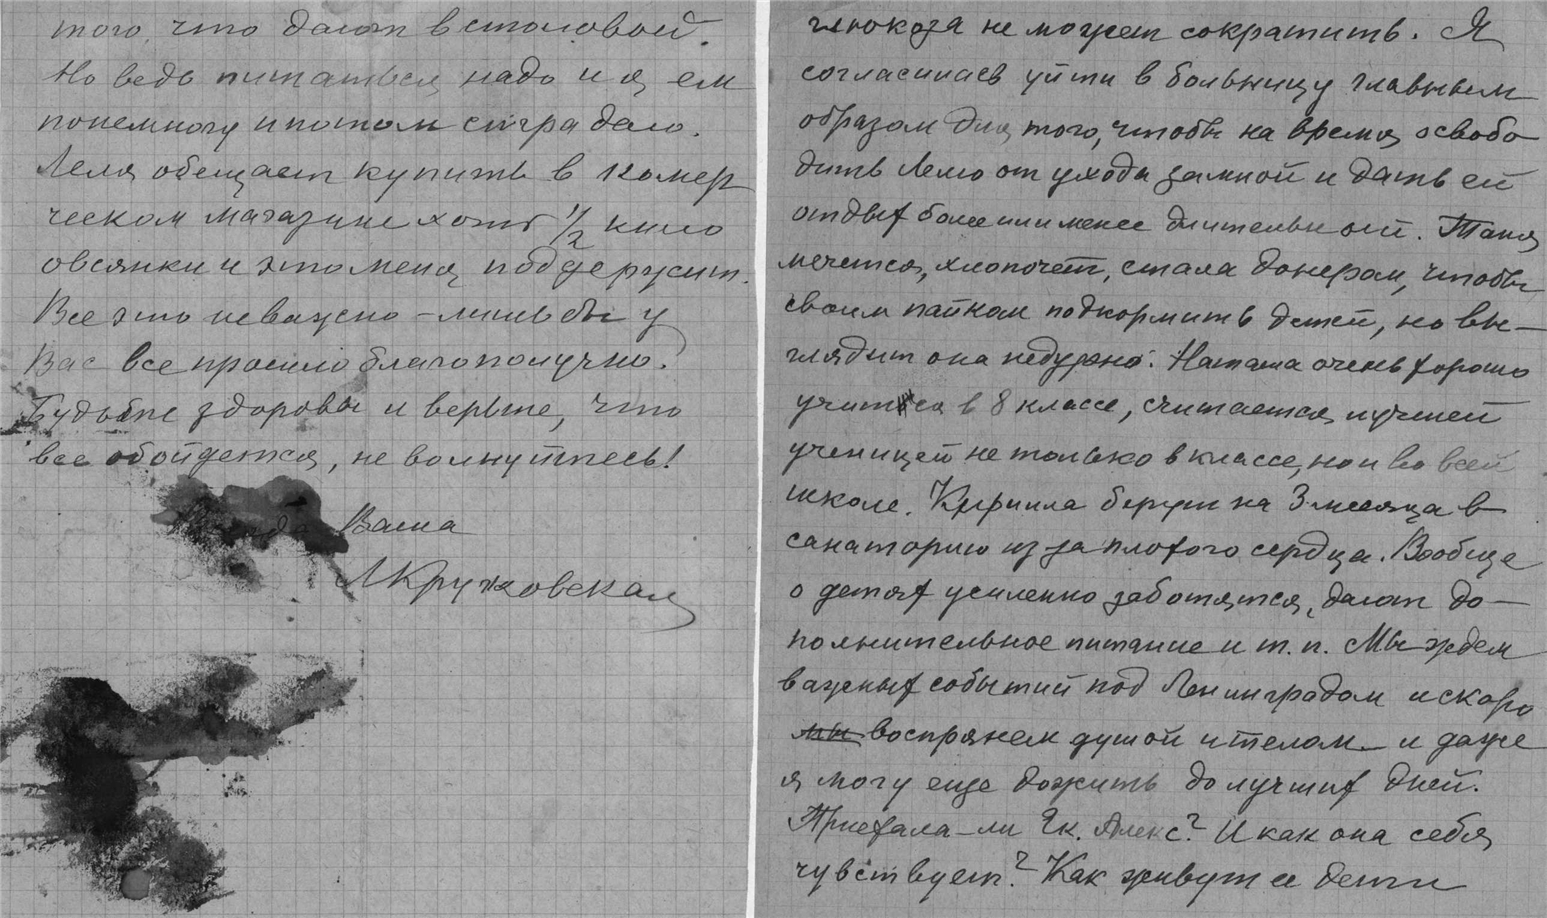 того, что дают в столовой.
Но ведь питаться надо и я ем
понемногу и потом страдаю.
Леля обещает купить в комер
ческом магазине хоть 1/2 кило
овсянки и это меня поддержит.
Все это неважно – лишь бы у
Вас все прошло благополучно.
Будьте здоровы и верьте, что
все обойдется, не волнуйтесь!
Ваша
ЛКружковская
глюкоза не может сократить. Я
согласилась уйти в больницу главным
образом для того, чтобы на время освобо
дить Лелю от ухода за мной и дать ей
отдых более или менее длительный. Таня
мечется, хлопочет, стала донором, чтобы
своим пайком подкормить детей, но вы–
глядит она недурно. Наташа очень хорошо
учится в 8 классе, считается лучшей
ученицей не только в классе, но и во всей
школе. Кирилла берут на 3 месяца в
санаторию из за плохого сердца. Вообще
о детях усиленно заботятся, дают до–
полнительное питание и т. п. Мы ждем
важных событий под Ленинградом и скоро
мы воспрянем душой и телом – и даже
я могу еще дожить до лучших дней.
Приехала–ли Ек. Алекс? И как она себя
чувствует? Как живут ее дети